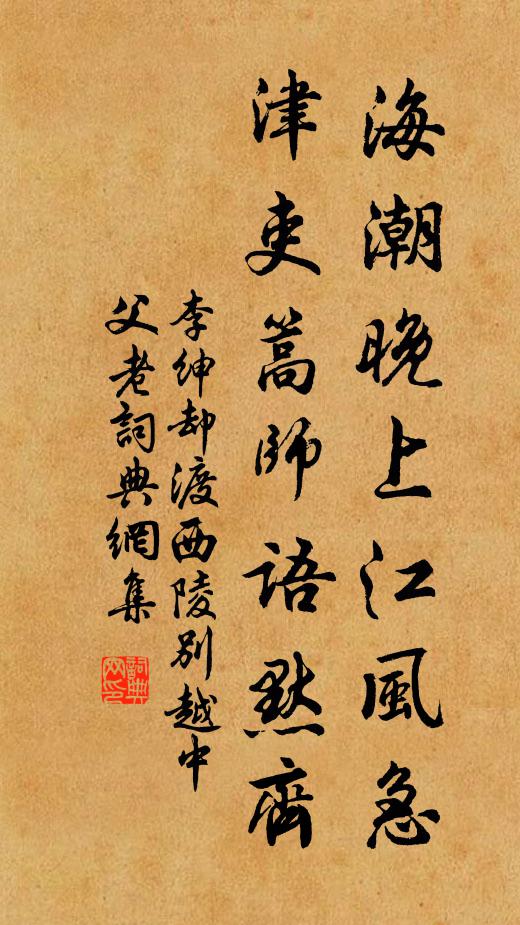 海潮晚上江風急
津吏蒿師語默齊
李紳却渡西陵別越中
父老詞典網集
詞典网印